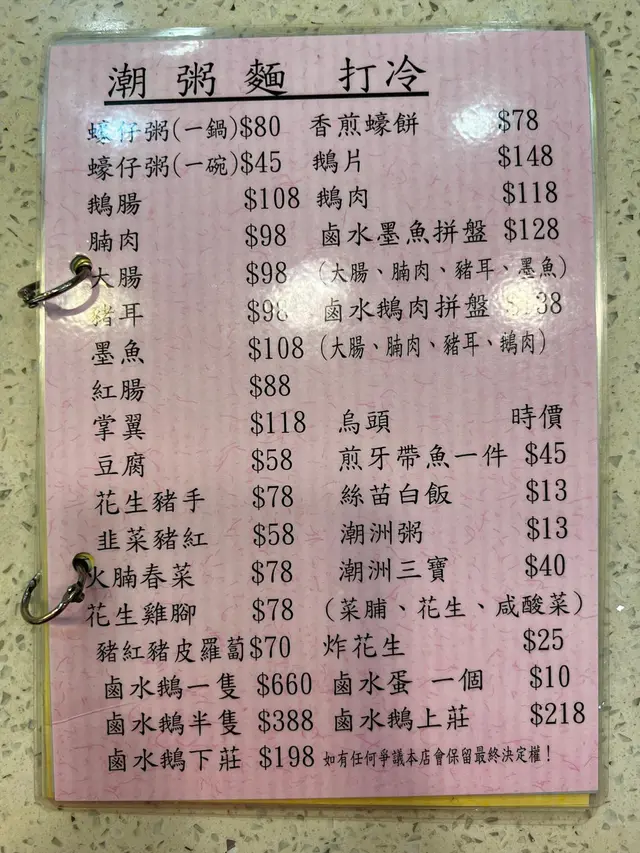 潮粥麵 打冷
蠔仔粥(一鍋)$80
蠔仔粥(一碗)$45
鵝腸 $108
腩肉 $98
大腸 $98
豬耳 $98
墨魚 $108
紅腸 $88
掌翼 $118
豆腐 $58
花生豬手 $78
韭菜豬紅 $58
火腩春菜 $78
花生雞腳 $78
豬紅豬皮羅蔔$70
鹵水鵝一隻 $660
鹵水鵝半隻 $388
鹵水鵝下莊 $198
香煎蠔餅 $78
鵝片 $148
鵝肉 $118
鹵水墨魚拼盤 $128
(大腸、腩肉、豬耳、墨魚)
鹵水鵝肉拼盤 $138
(大腸、腩肉、豬耳、鵝肉)
烏頭 時價
煎牙帶魚一件 $45
絲苗白飯 $13
潮洲粥 $13
潮洲三寶 $40
(菜脯、花生、咸酸菜)
炸花生 $25
鹵水蛋 一個 $10
鹵水鵝上莊 $218
如有任何爭議本店會保留最終決定權！